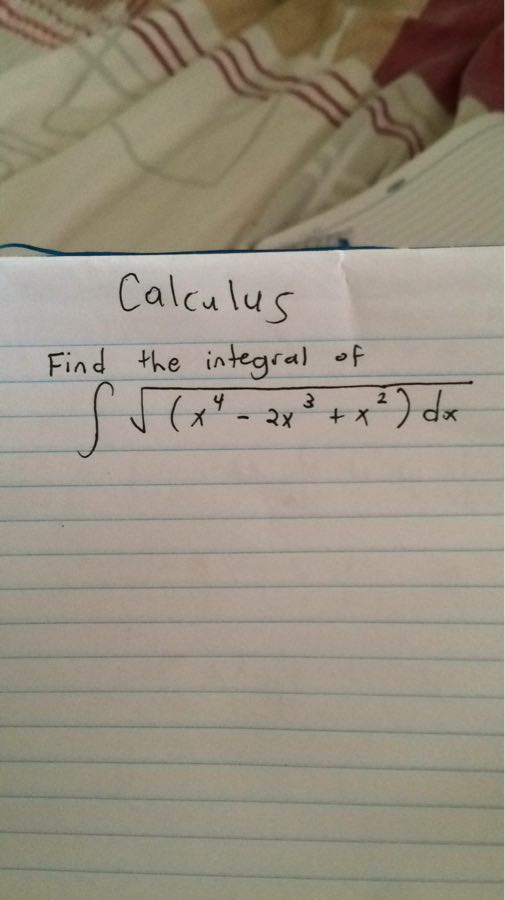 Calculus
Find the integral of
∫ √(x⁴ - 2x³ + x²) dx